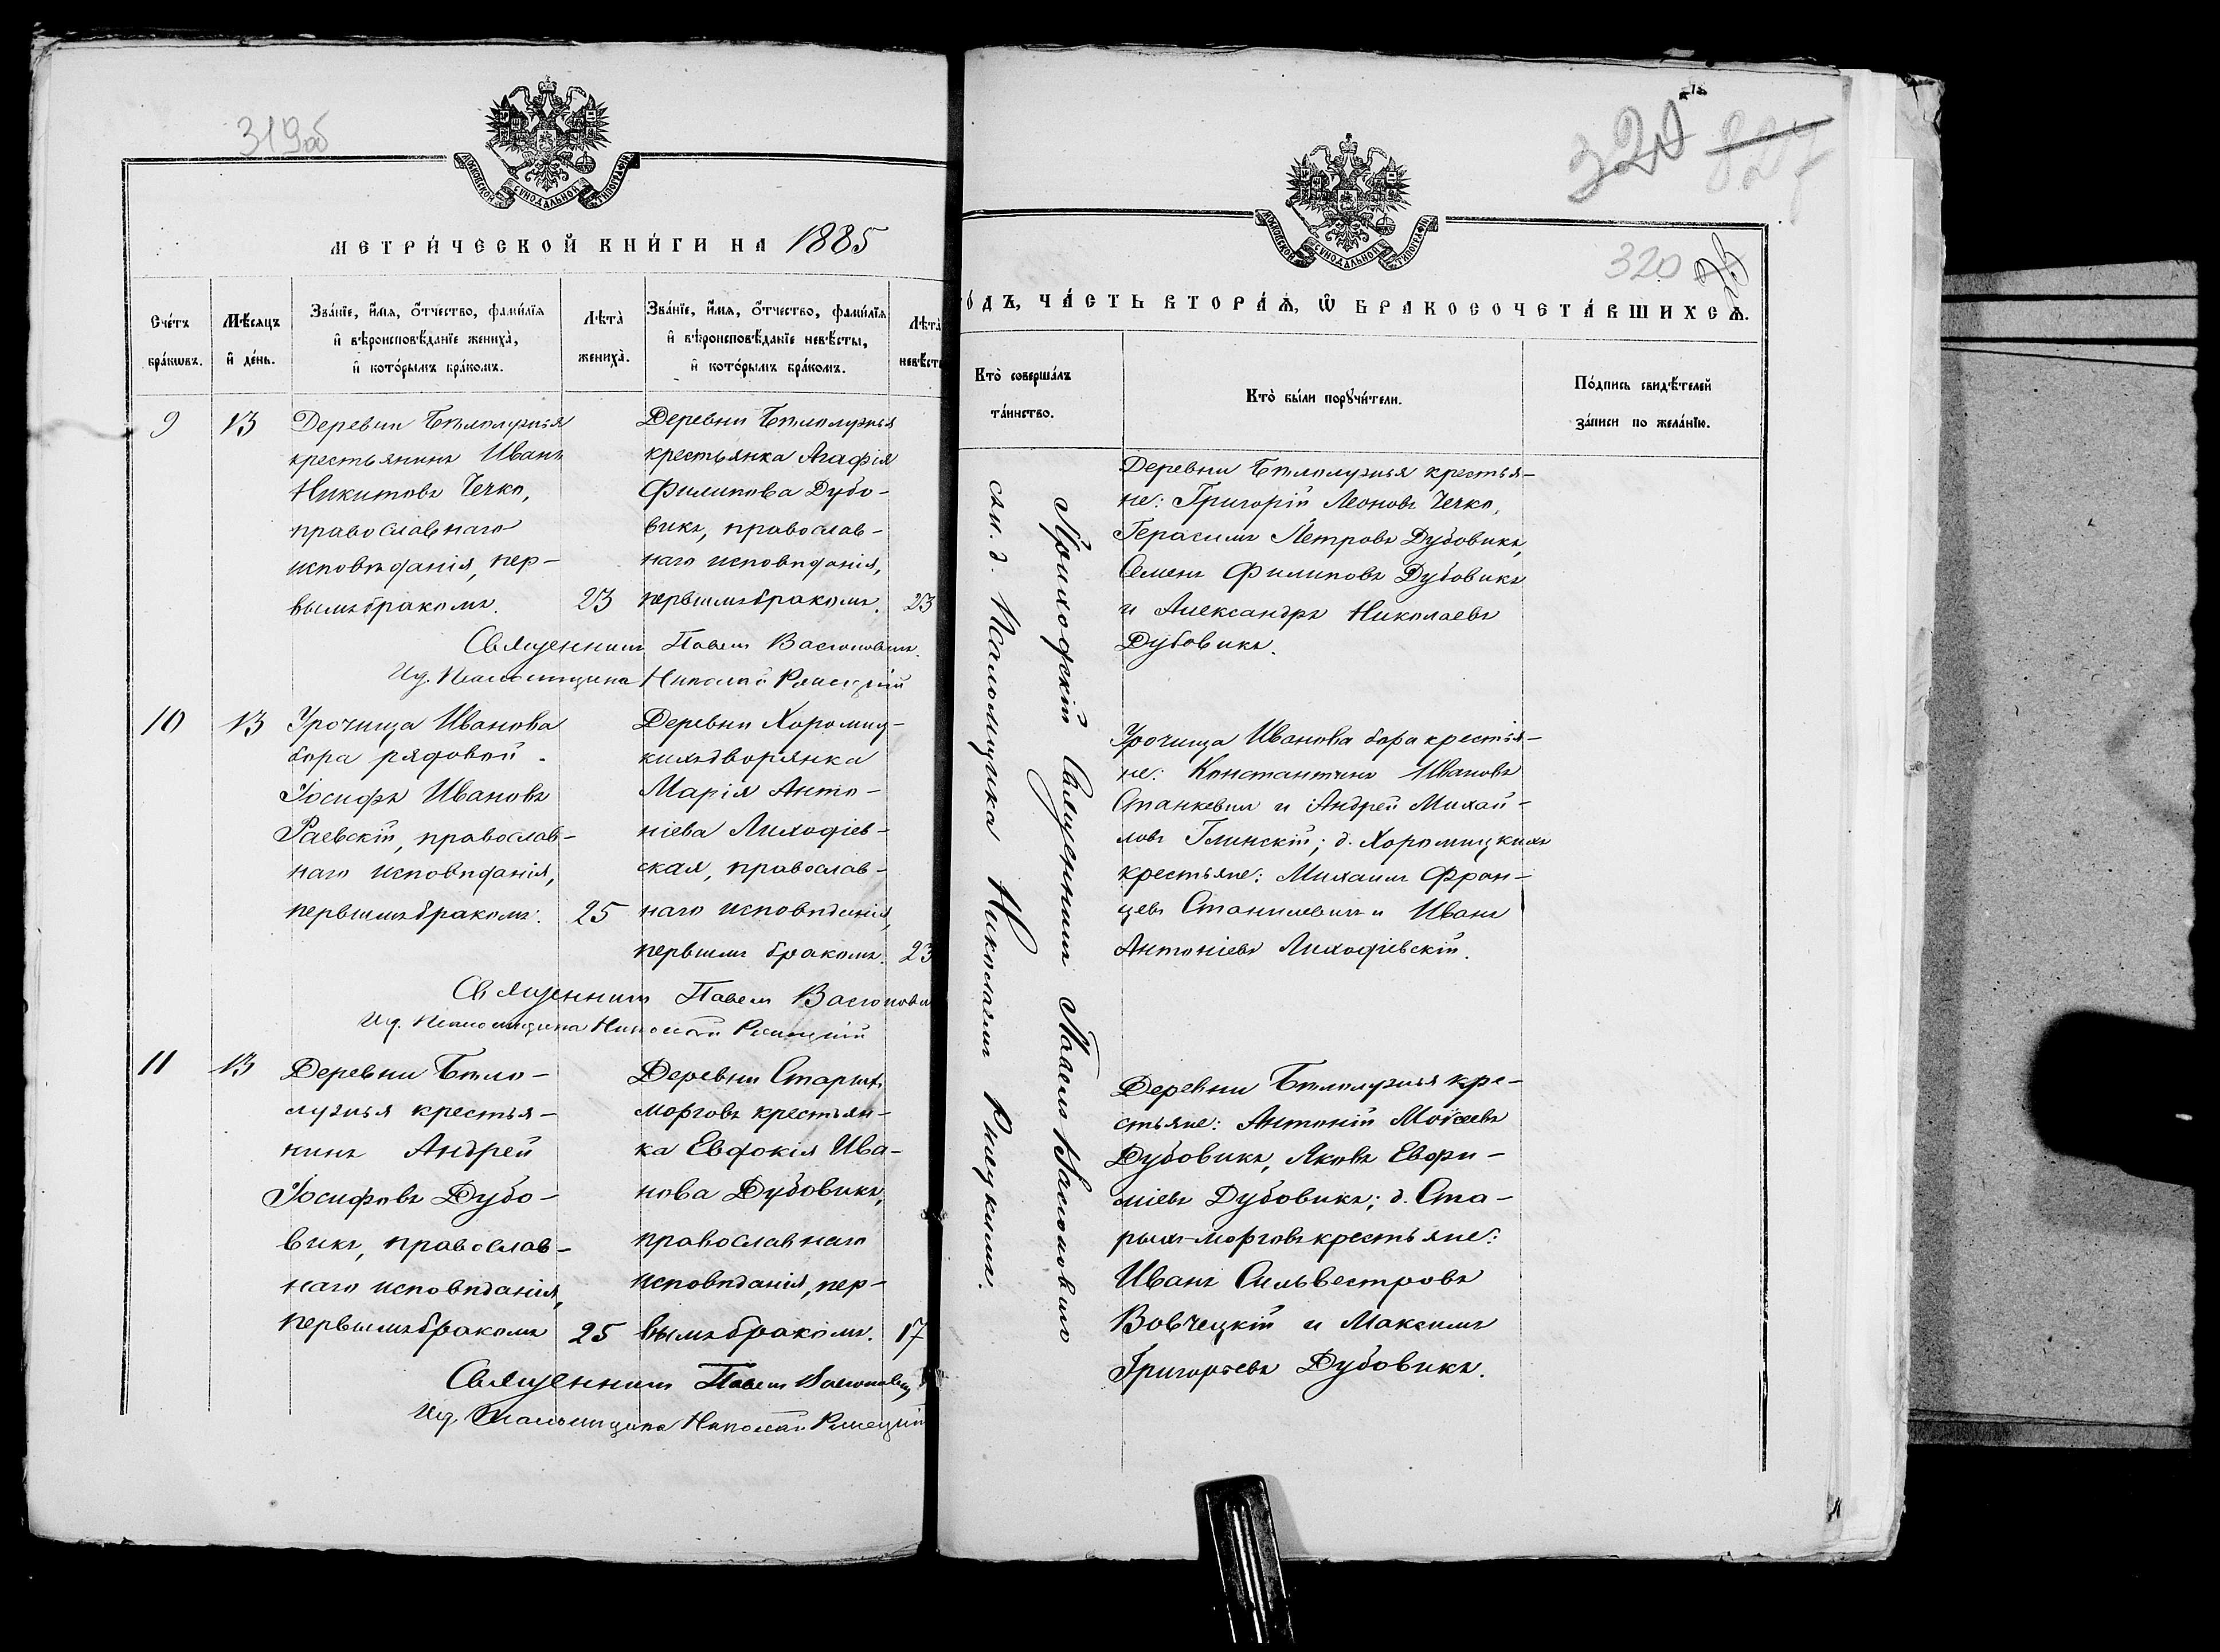 319об
МОСКОВСКОЙ СѴНОДАЛЬНОЙ ТИПОГРАФІИ
МЕТРИ́ЧЕСКОЙ КНИ́ГИ НА 1885
Сче́тъ
бра́кѡвъ.
Мѣ́сяцъ
и҆ де́нь.
Зва́нїе, и҆́мя, ѻ҆́тчество, фами́лїя
и҆ вѣроисповѣ́данїе жениха̀,
и҆ кото́рымъ бра́комъ.
Лѣта̀
жениха̀.
Зва́нїе, и҆́мя, ѻ҆́тчество, фами́лїя
и҆ вѣроисповѣ́данїе невѣ́сты,
и҆ кото́рымъ бра́комъ.
Лѣта̀
невѣ́ст
9
13
Деревни Бѣлолужья
крестьянинъ Иванъ
Никитовъ Чечко,
православнаго
исповѣданія, пер-
вымъ бракомъ.
23
Деревни Бѣлолужья
крестьянка Агафія
Филипова Дубо-
викъ, православ-
наго исповѣданія,
первымъ бракомъ.
23
Священникъ Павелъ
Ид. Псаломщика Николай
10
13
Урочища Иванова
бора рядовой
Іосифъ Ивановъ
Раевскій, православ-
наго исповѣданія,
первымъ бракомъ.
25
Деревни Хоромиц-
кихъ дворянка
Марія Анто-
ніева Лиходіев-
ская, православ-
наго исповѣданія,
первымъ бракомъ.
23
Священникъ Павелъ
Ид. Псаломщика Николай
11
13
Деревни Бѣло-
лужья крестья-
нинъ Андрей
Іосифовъ Дубо-
викъ, православ-
наго исповѣданія,
первымъ бракомъ
25
Деревни Старыхъ
морговъ крестьян-
ка Евдокія Ива-
нова Дубовикъ,
православнаго
исповѣданія, пер-
вымъ бракомъ.
17
Священникъ Павелъ
Ид. Псаломщика Николай
320 827
МОСКОВСКОЙ СѴНОДАЛЬНОЙ ТИПОГРАФІИ
320
О́ДЪ, ЧА́СТЬ ВТОРА́Ѧ, Ѿ БРАКОСОЧЕТА́ВШИХСѦ.
Кто̀ соверша́лъ
та́инство.
Кто̀ бы́ли порꙋчи́тели.
По́дпись свидѣ́телей
за́писи по жела́нїю.
Приходскій Священникъ Павелъ
съ и. д. Псаломщика Николаемъ
Деревни Бѣлолужья крестья-
не: Григорій Леоновъ Чечко,
Герасимъ Петровъ Дубовикъ,
Семенъ Филиповъ Дубовикъ
и Александръ Николаевъ
Дубовикъ.
Урочища Иванова бора крестья-
не: Константинъ Ивановъ
Станкевичъ и Андрей Михай-
ловъ Глинскій; д. Хоромицкихъ
крестьяне: Михаилъ Фран-
цевъ Станилевичъ и Иванъ
Антоніевъ Лиходіевскій.
Деревни Бѣлолужья кре-
стьяне: Антоній Моѵсеевъ
Дубовикъ, Яковъ Евфи-
міевъ Дубовикъ; д. Ста-
рыхъ-морговъ крестьяне:
Иванъ Сильвестровъ
Вовчецкій и Максимъ
Григорьевъ Дубовикъ.